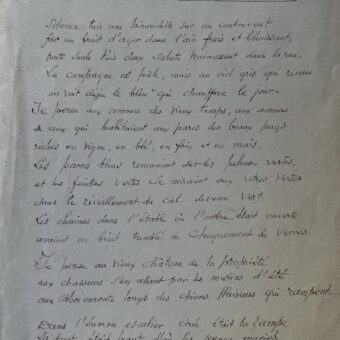 Silence, puis une hirondelle sur un contrevent
fait un bruit d'azur dans l'air frais et bleuissant,
toute seule. Puis deux sabots traînassent dans la rue.
La campagne est pâle, mais au ciel gris qui remue
on voit déjà le bleu qui chauffera le jour.
Je pense aux amours des vieux temps, aux amours
de ceux qui habitaient aux parcs des beaux pays
riches en vigne, en blé, en foin et en maïs.
Les paons bleus remuaient sur les pelouses vertes,
et les feuilles vertes se miraient aux vitres vertes
dans le réveillement du ciel devenu vert.
Les chaînes dans l'étable où l'ombre était ouverte
avaient un bruit tremblé de choquement de verres.
Je pense au vieux château de la propriété
aux chasseurs s'en allant par les matins d'été
aux aboiements longs des chiens flaireurs qui rampent....
Dans l'énorme escalier ciré était la rampe
La porte était haute